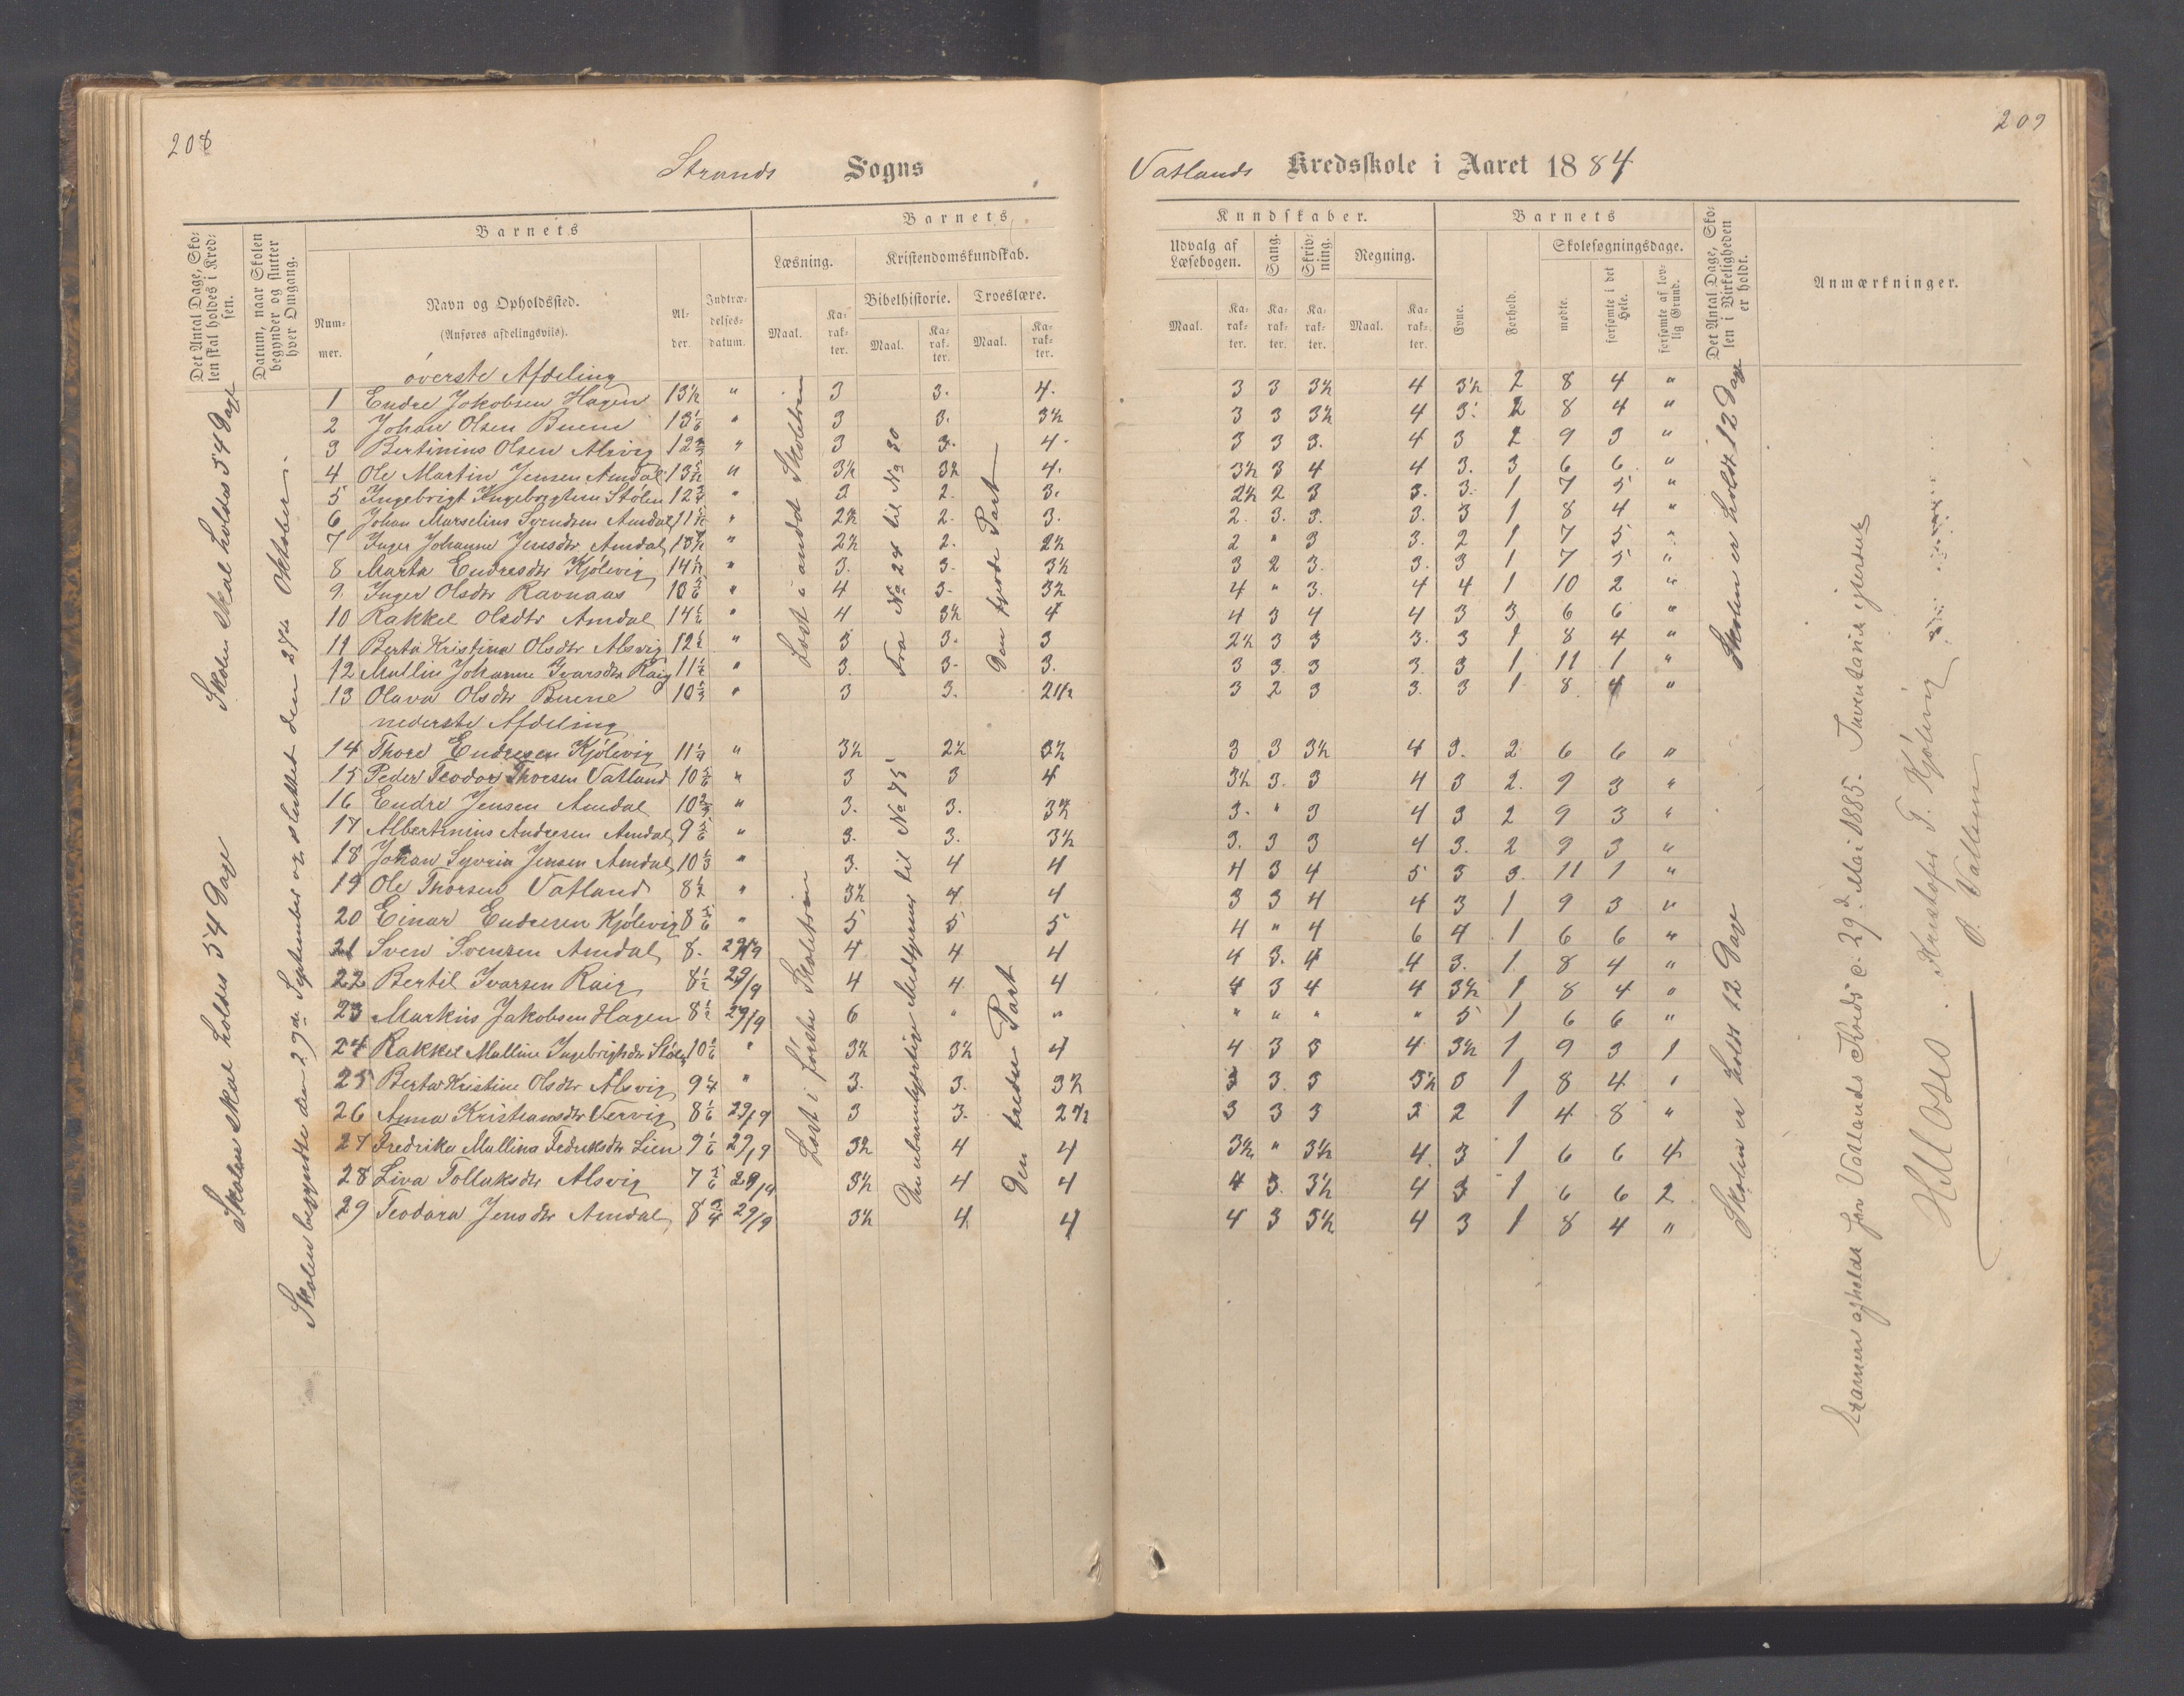 208
209
Strands Sogns
Vatlands Kredsskole i Aaret 1884
Det Antal Dage, Skolen skal holdes i Kredsen.
Datum, naar Skolen begynder og slutter hver Omgang.
Barnets
Nummer.
Navn og Opholdssted.
(Anføres afdelingsviis).
Alder.
Indtrædelsesdatum.
Barnets
Læsning.
Kristendomskundskab.
Bibelhistorie.
Troeslære.
Maal.
Karakter.
Maal.
Karakter.
Maal.
Karakter.
Kundskaber.
Udvalg af Læsebogen.
Sang.
Skrivning.
Regning.
Maal.
Karakter.
Karakter.
Karakter.
Maal.
Karakter.
Barnets
Evne.
Forhold.
Skolesøgningsdage.
mødte.
forsømte i det Hele.
forsømte af lovlig Grund.
Det Antal Dage, Skolen i Virkeligheden er holdt.
Anmærkninger.
øverste Afdeling
1 Endre Jakobsen Hagen 13½ " 3 3. 4. 3 3 3½ 4 3½ 2 8 4 "
2 Johan Olsen Buene 13⅙ " 3 3. 3½ 3 3 3½ 4 3. 2 8 4 "
3 Bertinius Olsen Alsvig 12⅔ " 3 3. 4. 3 3 3. 4 3 2 9 3 "
4 Ole Martin Jensen Amdal 13 " 3½ 3½ 4. 3½ 3 4 4 3. 3 6 6 "
5 Ingebrigt Ingebrigtsen Stølen 12¾ " 2 2. 3. 2½ 2 3 3. 3. 1 7 5 "
6 Johan Marselius Svendsen Amdal 11 " 2½ 2. 3. 2. 3. 3. 3. 3 1 8 4 "
7 Inger Johanne Jensdtr Amdal " 2½ 2. 2½ 2 " 3 3. 2 1 7 5 "
8 Marta Endresdtr Kjølevig 14½ " 3. 3. 3½ 3 2 3. 3. 3 1 7 5 "
9. Inger Olsdtr Ravnaas " 4 3. 3½ 4 " 3. 4 4 1 10 2 "
10 Rakkel Olsdtr Amdal 14⅙ " 4 3½ 4 4 3 4 4 3 3 6 6 "
11 Berta Kristina Olsdtr Alsvig " 3 3. 3 2½ 3 3 3. 3 1 8 4 "
12 Mallin Johanne Ivarsdtr Raig 11½ " 3. 3. 3. 3 3. 3 3. 3 1 11 1 "
13 Olava Olsdtr Buene 10⅓ " 3 3. 2½ 3 2 3 3. 3 1 8 4 "
nederste Afdeling
14 Thore Endresen Kjølevig 11¼ " 3½ 2½ 3½ 3 3 3½ 4 3. 2 6 6 "
15 Peder Teodor Thorsen Vatland 10⅚ " 3 3 4 3½ 3. 3 4 3 2. 9 3 "
16 Endre Jensen Amdal 10⅔ " 3. 3. 3½ 3. " 3 4 3 2 9 3 "
17 Albertinius Andresen Amdal 9⅚ " 3. 3. 3½ 3. 3 3 4 3. 2 9 3 "
18 Johan Syvrin Jensen Amdal 10⅓ " 3. 4 4 4 3 4 5 3 3. 11 1 "
19 Ole Thorsen Vatland 8½ " 3½ 4 4 3 3 4 4 3 1 9 3 "
20 Einar Endresen Kjølevig 8⅚ " 5 5 5 4 " 4 6 4 1 6 6 "
21 Sven Svensen Amdal 8. 29/9 4 4 4 4 3. 4 4 3. 1 8 4 "
22 Bertil Ivarsen Raig 8½ 29/9 4 4 4 4 3 4 4 3½ 1 8 4 "
23 Markus Jakobsen Hagen 8½ 29/9 6 " " " " " " 5 1 6 6 "
24 Rakkel Malline Ingebrigtsdtr Stølen 10⅙ " 3½ 3½ 4 4 3 3 4 3½ 1 9 3 1
25 Berta Kristine Olsdtr Alsvig 9¼ " 3. 3. 3½ 3 3. 3 3½ 3 1 8 4 "
26 Anna Kristiansdtr Tervig 8⅙ 29/9 3 3. 2½ 3 3 3 3 2 1 4 8 "
27 Fredrika Mallina Fedriksdtr Lien 9⅙ 29/9 3½ 4 4 3½ " 3½ 4 3 1 6 6 4
28 Liva Tollaksdtr Alsvig 7⅚ 29/9 3½ 4 4 4 3. 3½ 4 3 1 6 6 2
29 Teodora Jensdtr Amdal 8¾ 29/9 3½ 4 4 4 3 3½ 4 3 1 8 4 "
Skolen skal holdes 54 Dage
Skolen skal holdes 54 Dage
Skolen begyndte den 29de September og sluttet den Oktober.
Læst i andet Skoletrin
Læst i første Skoletrin
Fra No 24 til No 30
til No 75
Den fjerde Part
Den tredie Part
Skolen er holdt 12 Dage
Skolen er holdt 12 Dage
Examen afholdt for Vatlands Kreds d. 29d Mai 1885. Inventariet efterseet
Kristofer T. Kjølevig